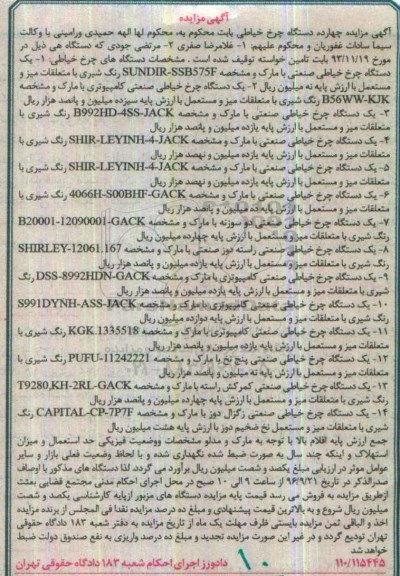 آگهی مزایده
آگهی مزایده چهارده دستگاه چرخ خیاطی بابت محکوم به، محکوم لها الهه حمیدی ورامینی با وکالت
سیما سادات غفوریان و محکوم علیهم: ۱- غلامرضا صفری ۲- مرتضی جودی که دستگاه هی ذیل در
مورخ ۹۳/۱۱/۱۹ بابت تامین خواسته توقیف شده است . مشخصات دستگاه های چرخ خیاطی: ۱- یک
دستگاه چرخ خیاطی صنعتی با مارک و مشخصه SUNDIR-SSB575F رنگ شیری با متعلقات میز و
مستعمل با ارزش پایه نه میلیون ریال ۲- یک دستگاه چرخ خیاطی صنعتی کامپیوتری با مارک و مشخصه
B56WW-KJK رنگ شیری با متعلقات میز و مستعمل با ارزش پایه سیزده میلیون و پانصد هزار ریال
۳- یک دستگاه چرخ خیاطی صنعتی با مارک و مشخصه B992HD-4SS-JACK رنگ شیری با
متعلقات میز و مستعمل با ارزش پایه یازده میلیون و پانصد هزار ریال
۴- یک دستگاه چرخ خیاطی صنعتی با مارک و مشخصه SHIR-LEYINH-4-JACK رنگ شیری با
متعلقات میز و مستعمل با ارزش پایه یازده میلیون و نهصد هزار ریال
۵- یک دستگاه چرخ خیاطی صنعتی با مارک و مشخصه SHIR-LEYINH-4-JACK رنگ شیری با
متعلقات میز و مستعمل با ارزش پایه یازده میلیون و نهصد هزار ریال
۶- یک دستگاه چرخ خیاطی صنعتی با مارک و مشخصه 4066H-S00BHF-GACK رنگ شیری با
متعلقات میز و مستعمل با ارزش پایه ده میلیون و پانصد هزار ریال
۷- یک دستگاه چرخ خیاطی صنعتی دو سوزنه با مارک و مشخصه B20001-12090001-GACK
رنگ شیری با متعلقات میز و مستعمل با ارزش پایه چهارده میلیون ریال
۸- یک دستگاه چرخ خیاطی صنعتی راسته دوز صنعتی با مارک و مشخصه SHIRLEY-12061.167
رنگ شیری با متعلقات میز و مستعمل با ارزش پایه یازده میلیون و پانصد هزار ریال
۹- یک دستگاه چرخ خیاطی صنعتی کامپیوتری با مارک و مشخصه DSS-8992HDN-GACK رنگ
شیری با متعلقات میز و مستعمل با ارزش پایه یازده میلیون و پانصد هزار ریال
۱۰- یک دستگاه چرخ خیاطی صنعتی کامپیوتری با مارک و مشخصه S991DYNH-ASS-JACK
رنگ شیری با متعلقات میز و مستعمل با ارزش پایه دوازده میلیون ریال
۱۱- یک دستگاه چرخ خیاطی صنعتی کامپیوتری با مارک و مشخصه KGK.1335518 رنگ شیری با
متعلقات میز و مستعمل با ارزش پایه یازده میلیون و پانصد هزار ریال
۱۲- یک دستگاه چرخ خیاطی صنعتی پنج نخ با مارک و مشخصه PUFU-11242221 رنگ شیری با
متعلقات میز و مستعمل با ارزش پایه یازده میلیون و پانصد هزار ریال
۱۳- یک دستگاه چرخ خیاطی صنعتی کمرکش راسته با مارک و مشخصه T9280,KH-2RL-GACK
رنگ شیری با متعلقات میز و مستعمل با ارزش پایه چهارده میلیون و پانصد هزار ریال
۱۴- یک دستگاه چرخ خیاطی صنعتی زگزال دوز با مارک و مشخصه CAPITAL-CP-7P7F رنگ
شیری با متعلقات میز و مستعمل نخ ضخیم دوز با ارزش پایه هشت میلیون ریال
جمع ارزش پایه اقلام بالا با توجه به مارک و مدلو مشخصات ووضعیت فیزیکی حد استعمال و میزان
استهلاک و اینکه چند سال به صورت ضبط شده نگهداری شده و با لحاظ وضعیت فعلی بازار و سایر
عوامل موثر در ارزیابی مبلغ یکصد و شصت میلیون ریال برآورد می گردد، لذا دستگاه های مذکور با اوصاف
صدرالذکر در تاریخ ۹۶/۹/۲۱ از ساعت ۹ الی ۱۰ صبح در محل اجرای احکام مدنی مجتمع قضایی بعثت
ازطریق مزایده به فروش می رسد قیمت پایه مزایده دستگاه های مزبور ازپایه کارشناسی یکصد و شصت
میلیون ریال شروع و به بالاترین قیمت پیشنهادی و مبلغ ده درصد مزایده نقدا فی المجلس از برنده مزایده
اخذ و الباقی ثمن مزایده بایستی ظرف مهلت یک ماه از تاریخ مزایده به دفتر شعبه ۱۸۳ دادگاه حقوقی
تهران تودیع گردد و در غیر این صورت مزایده تجدید و مبلغ ده درصد واریزی به نفع صندوق دولت ضبط
خواهد شد
۱۱۰/۱۱۵۴۴۵ دادورز اجرای احکام شعبه ۱۸۳ دادگاه حقوقی تهران
۱۰